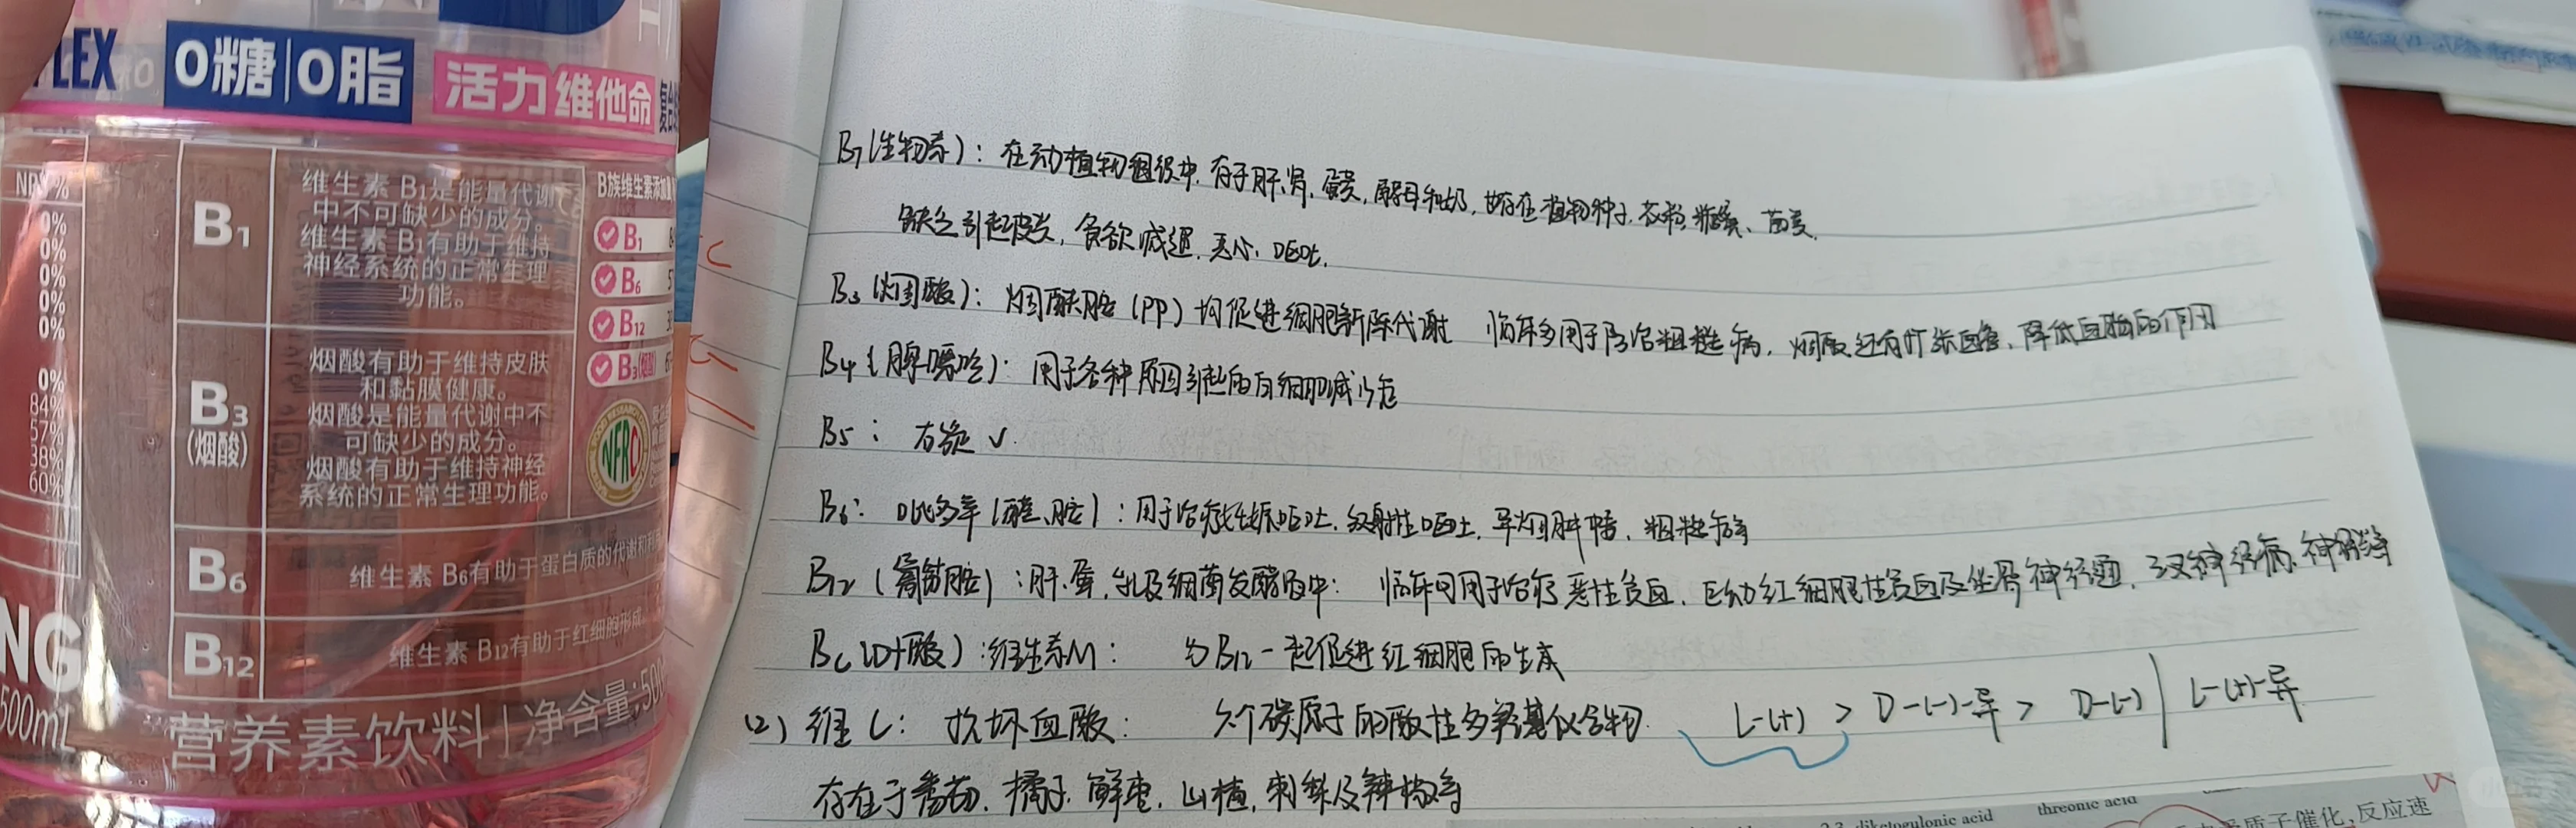 LEX
0糖|0脂
活力维他命
NRV%
0%
0%
0%
0%
0%
0%
84%
57%
38%
60%
NG
500mL
B1
维生素 B1是能量代谢
中不可缺少的成分。
维生素 B1有助于维持
神经系统的正常生理
功能。
B3
(烟酸)
烟酸有助于维持皮肤
和黏膜健康。
烟酸是能量代谢中不
可缺少的成分。
烟酸有助于维持神经
系统的正常生理功能。
B6
维生素 B6有助于蛋白质的代谢和利
B12
维生素 B12有助于红细胞形成
营养素饮料|净含量:500
B族维生素添加
B1
B6
B12
B3(烟酸)
NFRC
B7(生物素): 在动植物组织中, 存于肝、肾, 蛋黄, 酵母和奶, 植物种子, 花粉, 糖蜜、菌类,
缺乏引起皮炎, 食欲减退, 恶心, 呕吐,
B3(烟酸): 烟酰胺(PP)均促进细胞新陈代谢 临床多用于防治粗糙病, 烟酸还有扩张血管, 降低血脂的作用
B4(腺嘌呤): 用于各种原因引起的白细胞减少症
B5: 右旋 √.
B6: 吡多辛(醛、胺): 用于治疗妊娠呕吐, 放射性呕吐, 异烟肼中毒, 粗糙病等
B12(氰钴胺): 肝、蛋, 乳及细菌发酵液中: 临床可用于治疗恶性贫血, 巨幼红细胞性贫血及坐骨神经痛, 三叉神经病, 神经炎等
Bc(叶酸): 维生素M: 与B12一起促进红细胞的生成
(2) 维C: 抗坏血酸: 六个碳原子的酸性多羟基化合物. L-(+) > D-(-)-异 > D-(-) | L-(+)-异
存在于番茄, 橘子, 鲜枣, 山楂, 刺梨及辣椒等
diketogulonic acid
threonic acid
质子催化,反应速